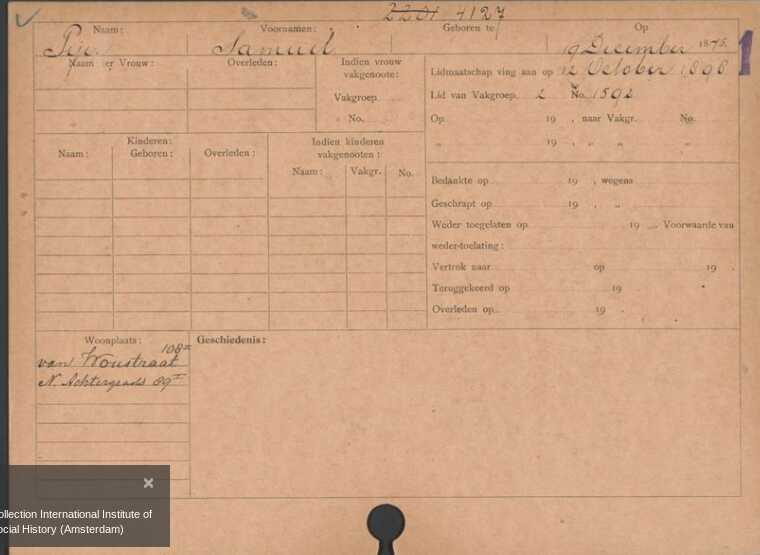 2201 4127
Naam: Voornamen: Geboren te Op
Samuel 19 December 1875.
Naam der Vrouw: Overleden: Indien vrouw vakgenoote: Lidmaatschap ving aan op 12 October 1898
Vakgroep Lid van Vakgroep 2 No. 1592
No. Op 19 , naar Vakgr. No.
" 19 , " " "
Kinderen: Indien kinderen vakgenooten:
Naam: Geboren: Overleden: Naam: Vakgr. No.
Bedankte op 19 , wegens
Geschrapt op 19 , "
Weder toegelaten op 19 Voorwaarde van
weder-toelating:
Vertrok naar op 19 .
Teruggekeerd op 19 .
Overleden op 19 .
Woonplaats: Geschiedenis:
108
van Woustraat
N. Achtergracht 89
1
×
ollection International Institute of
ocial History (Amsterdam)